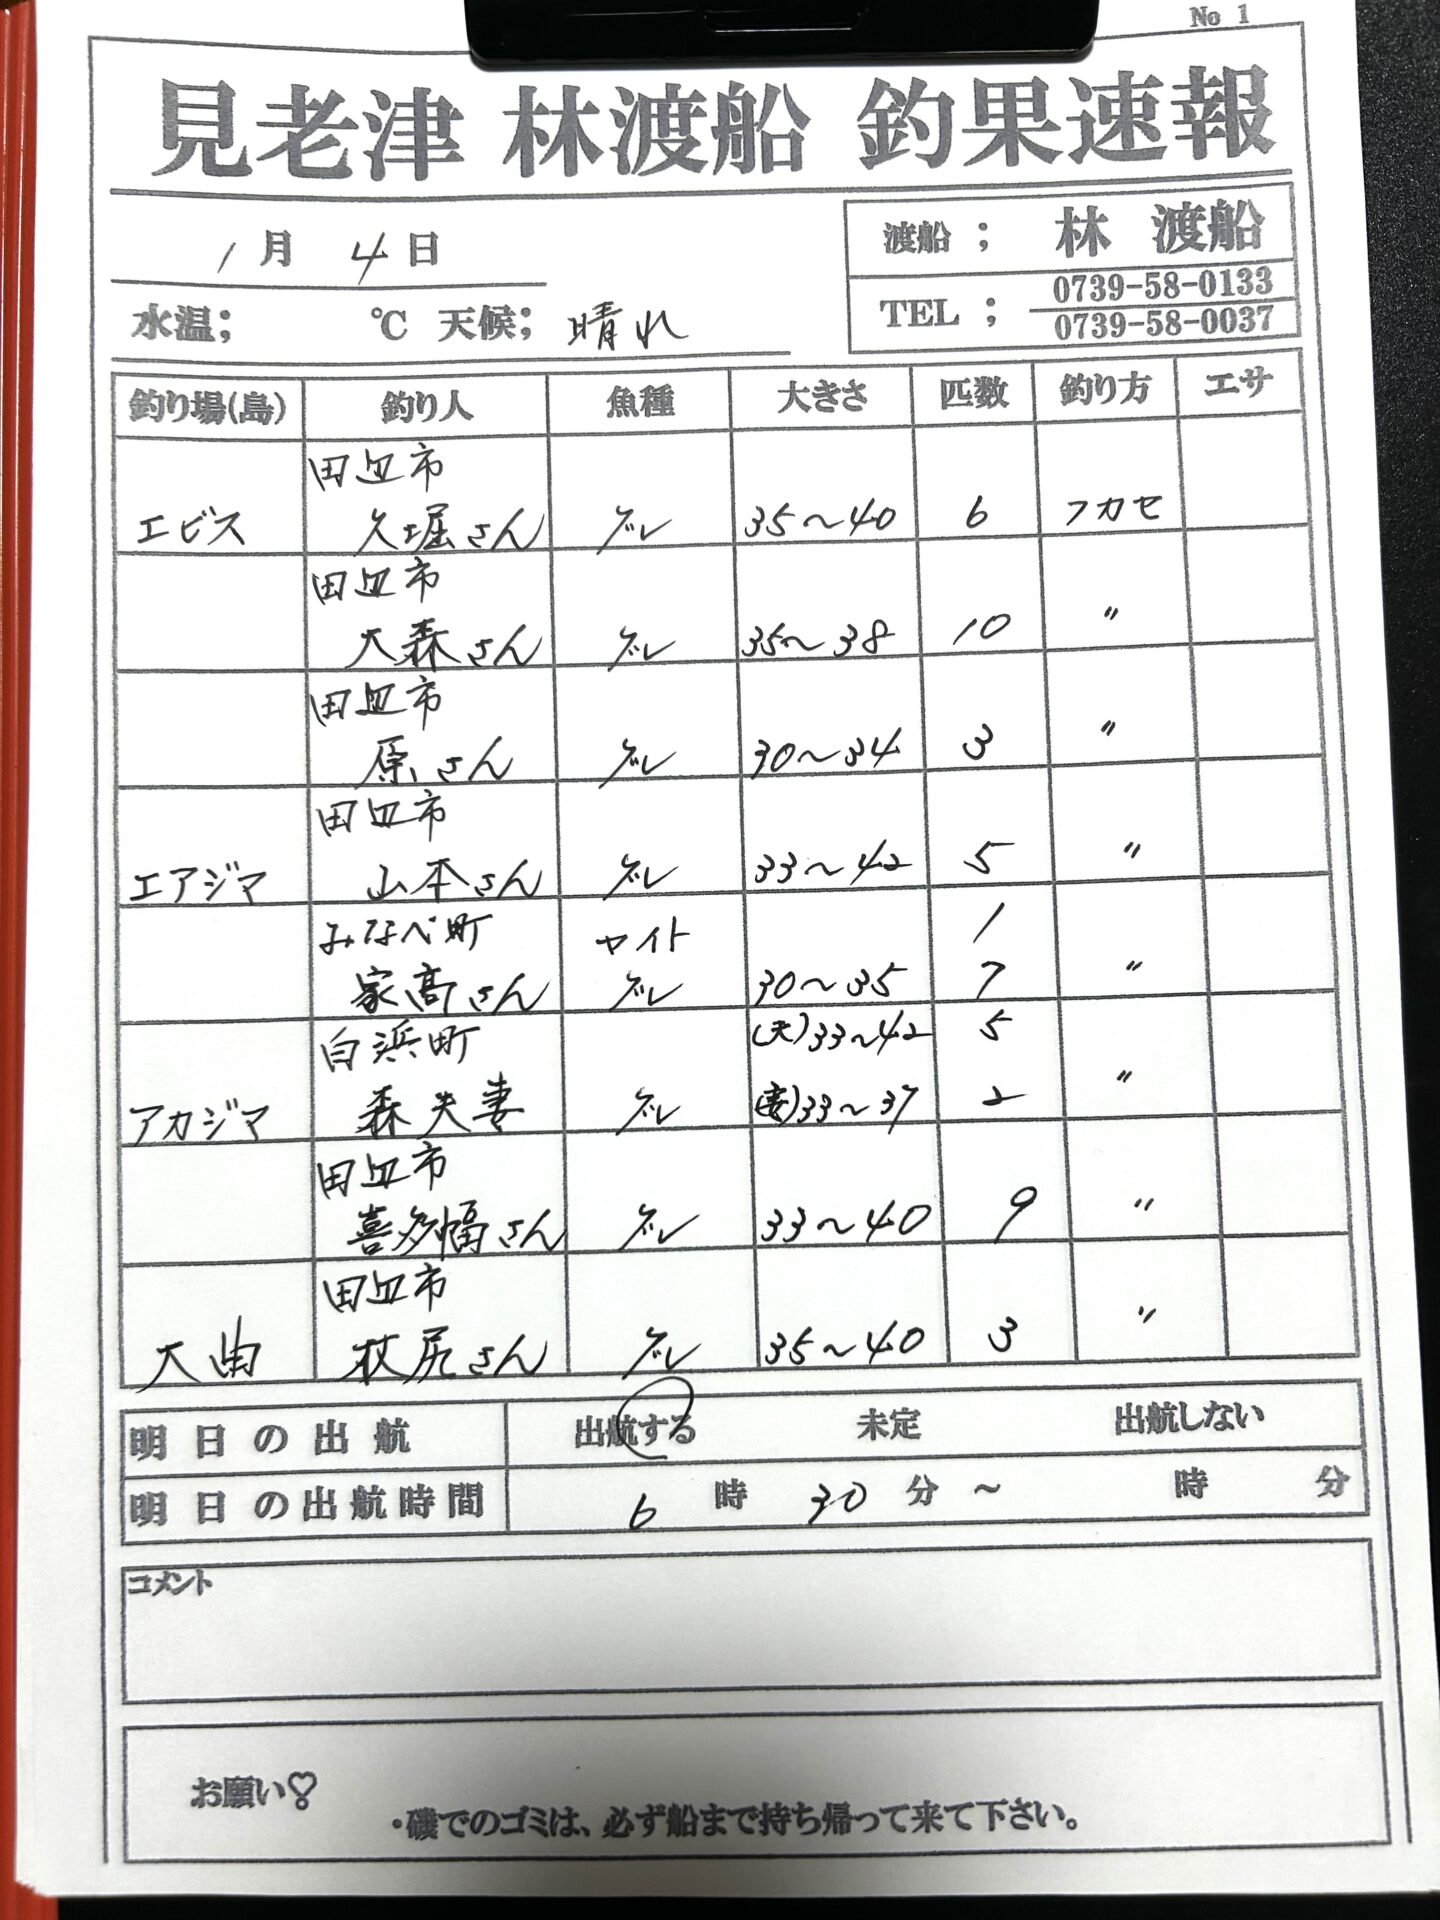 No 1
見老津 林渡船 釣果速報
1月 4日
渡船 ; 林 渡船
TEL ; 0739-58-0133
0739-58-0037
水温; ℃ 天候; 晴れ
釣り場(島) 釣り人 魚種 大きさ 匹数 釣り方 エサ
田辺市
エビス 久堀さん グレ 35〜40 6 フカセ
田辺市
大森さん グレ 35〜38 10 〃
田辺市
原さん グレ 30〜34 3 〃
田辺市
エアジマ 山本さん グレ 33〜42 5 〃
みなべ町 ヤイト 1
家高さん グレ 30〜35 7 〃
白浜町 (夫)33〜42 5
アカジマ 森夫妻 グレ (妻)33〜37 2 〃
田辺市
喜多幅さん グレ 33〜40 9 〃
田辺市
大曲 杖尻さん グレ 35〜40 3 〃
明日の出航 出航する 未定 出航しない
明日の出航時間 6 時 30 分 ~ 時 分
コメント
お願い♡
・磯でのゴミは、必ず船まで持ち帰って来て下さい。